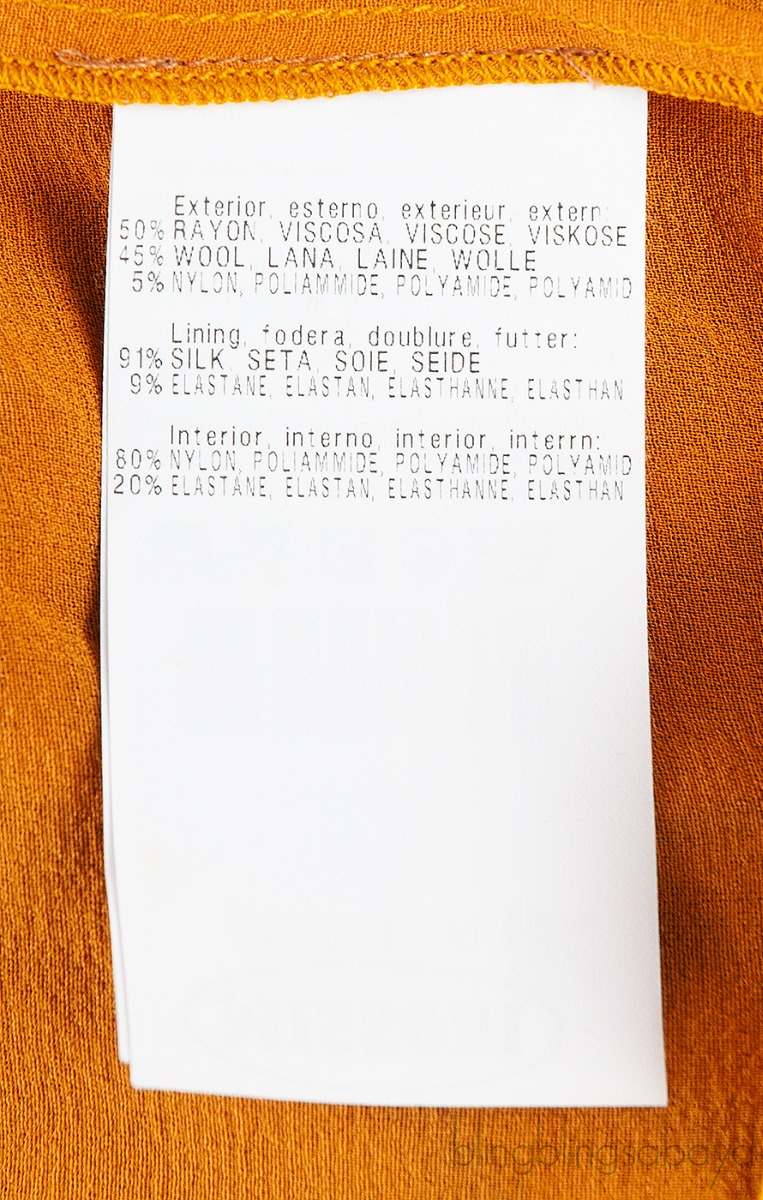 Exterior, esterno, exterieur, extern:
50% RAYON, VISCOSA, VISCOSE, VISKOSE
45% WOOL, LANA, LAINE, WOLLE
5% NYLON, POLIAMMIDE, POLYAMIDE, POLYAMID
Lining, fodera, doublure, futter:
91% SILK, SETA, SOIE, SEIDE
9% ELASTANE, ELASTAN, ELASTHANNE, ELASTHAN
Interior, interno, interior, interrn:
80% NYLON, POLIAMMIDE, POLYAMIDE, POLYAMID
20% ELASTANE, ELASTAN, ELASTHANNE, ELASTHAN
blingblingsabaya